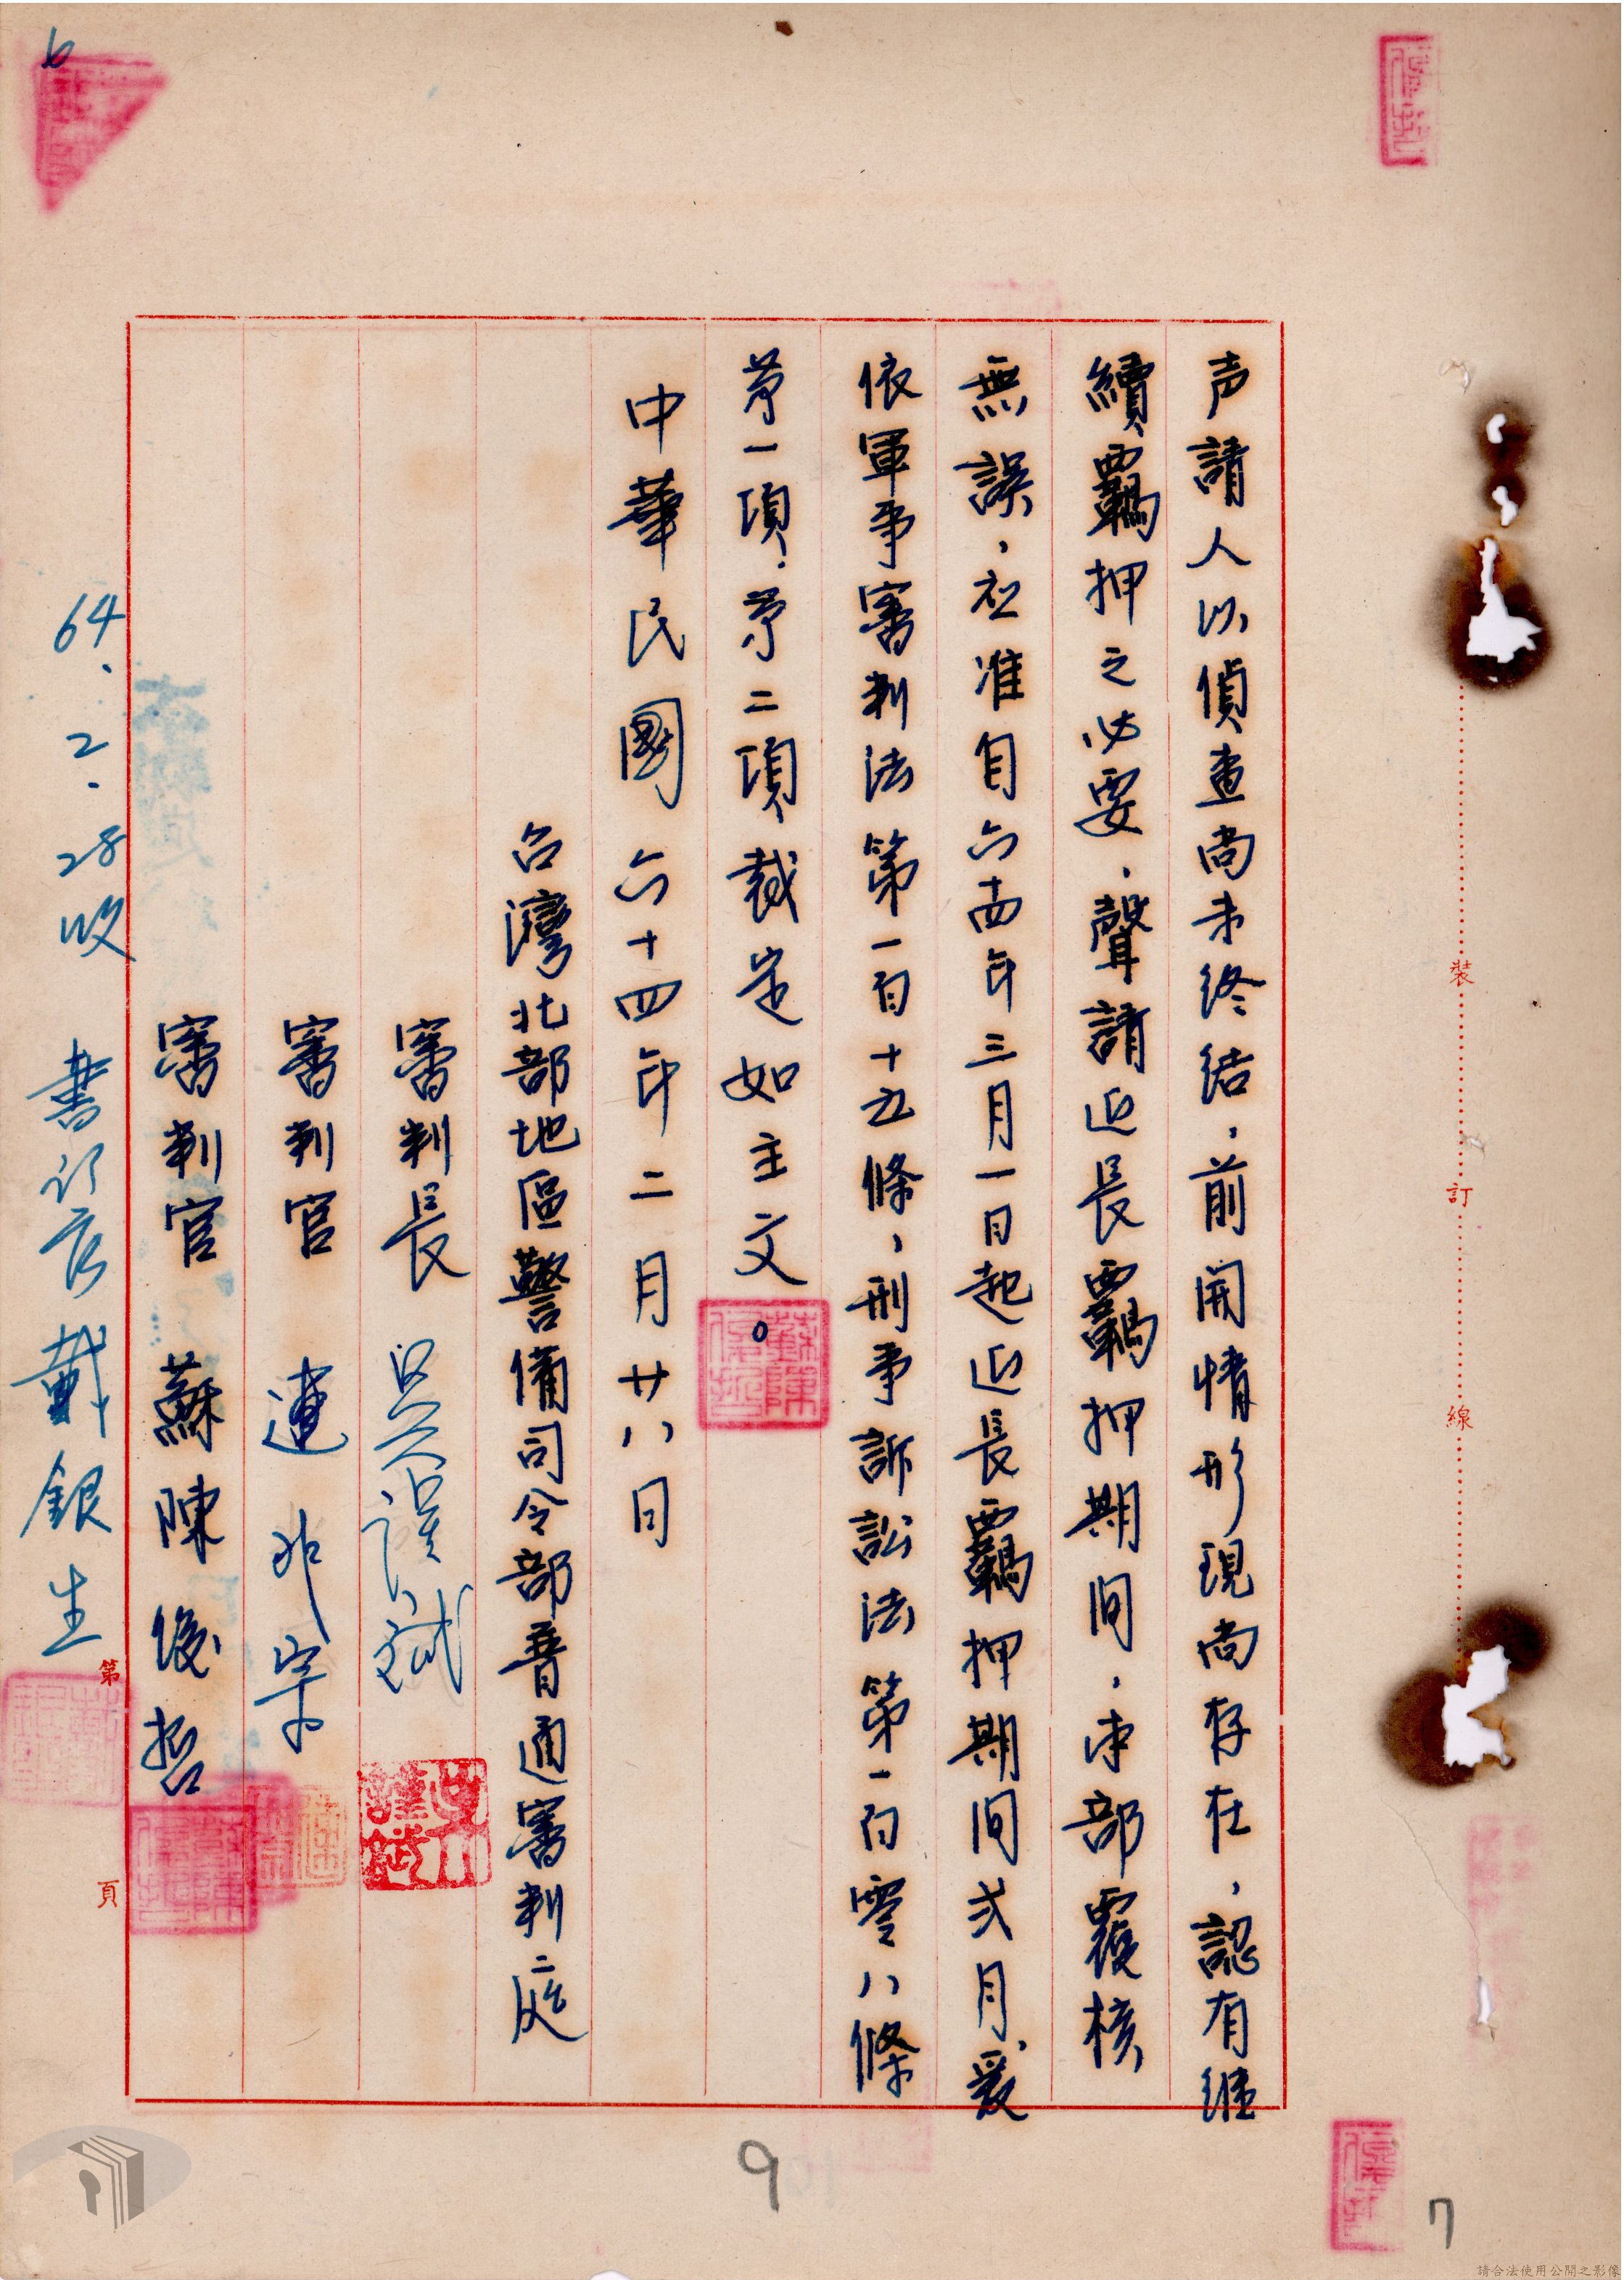 声請人以偵查尚未終結，前開情形現尚存在，認有繼
續羈押之必要，聲請延長羈押期間，本部覆核
無誤，应准自六十四年三月一日起延長羈押期間弍月，爰
依軍事審判法第一百十五條、刑事訴訟法第一百零八條
苐一項、苐二項裁定如主文。
中華民國六十四年二月廿八日
台灣北部地區警備司令部普通審判二庭
審判長 吳謹斌
審判官 連
審判官 蘇陳俊哲
64.2.28收 書记官 戴銀生
第 頁
裝 訂 線
6
9
7
請合法使用公開之影像